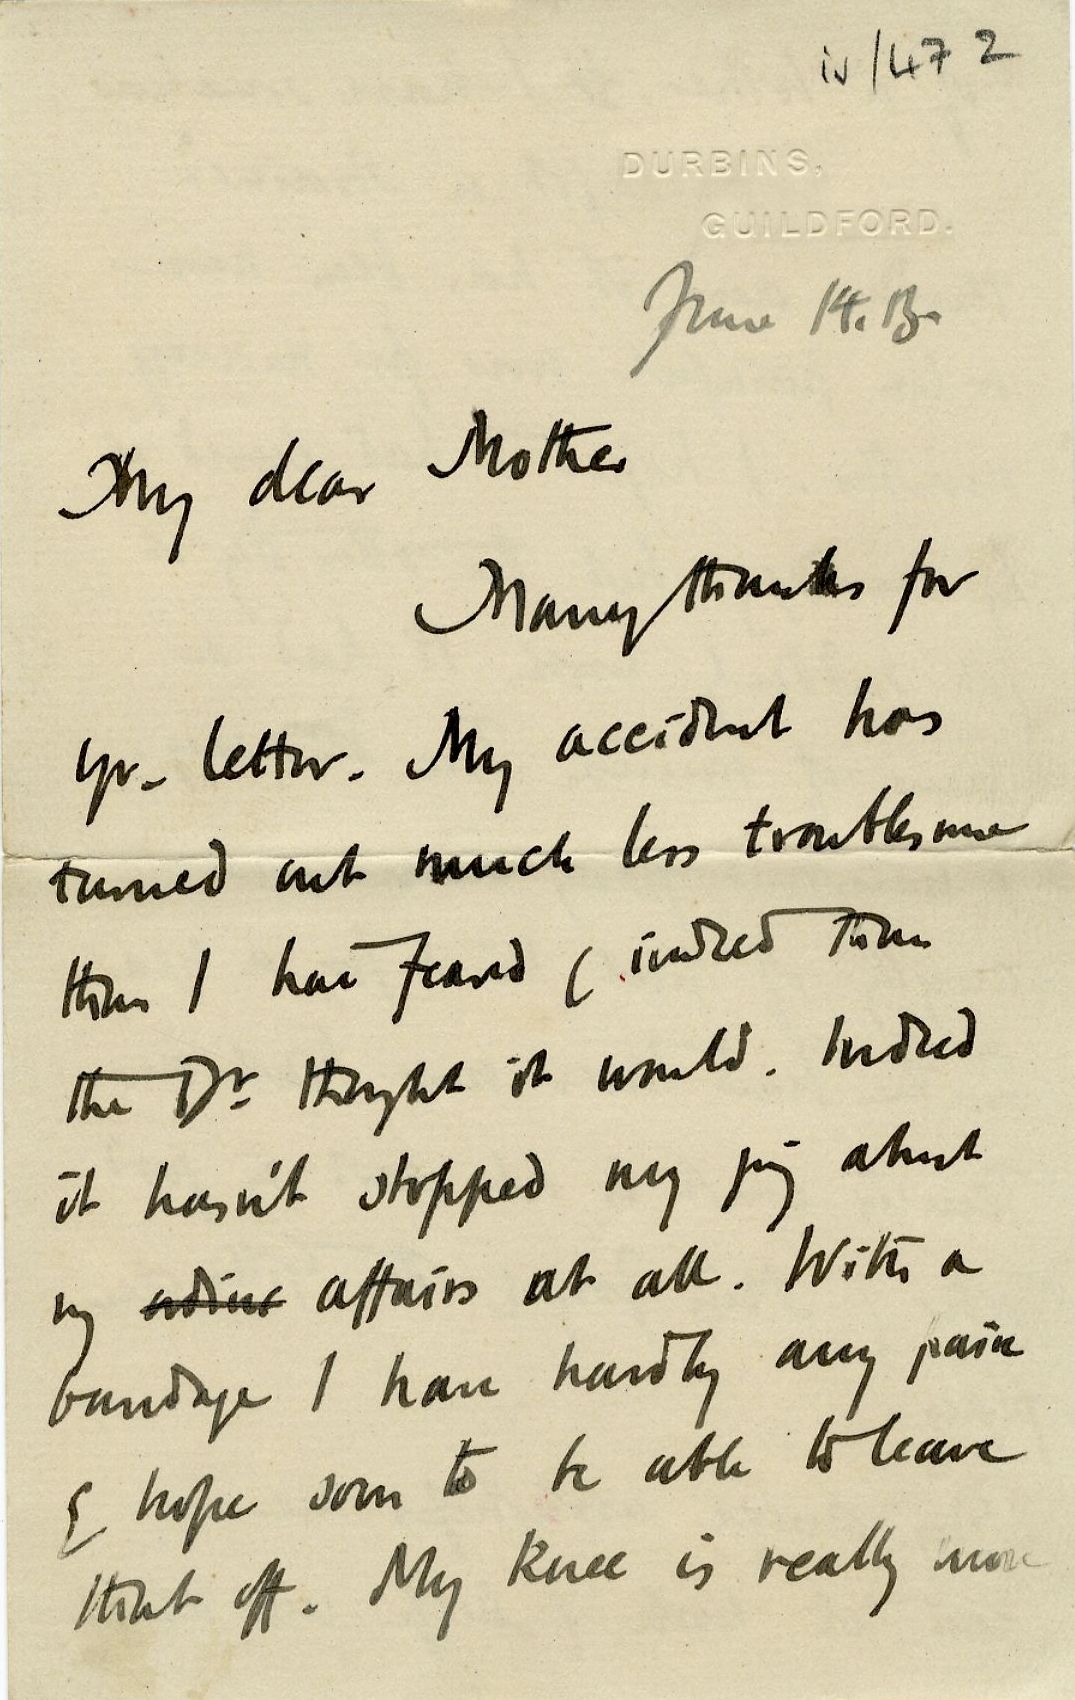 iv/472
DURBINS,
GUILDFORD.
June 14. 13.
My dear Mother
Many thanks for
yr. letter. My accident has
turned out much less troublesome
than I had feared ( indeed than
the Dr. thought it would. Indeed
it hasn't stopped my going about
my affairs at all. With a
bandage I have hardly any pain
& hope soon to be able to leave
that off. My knee is really more